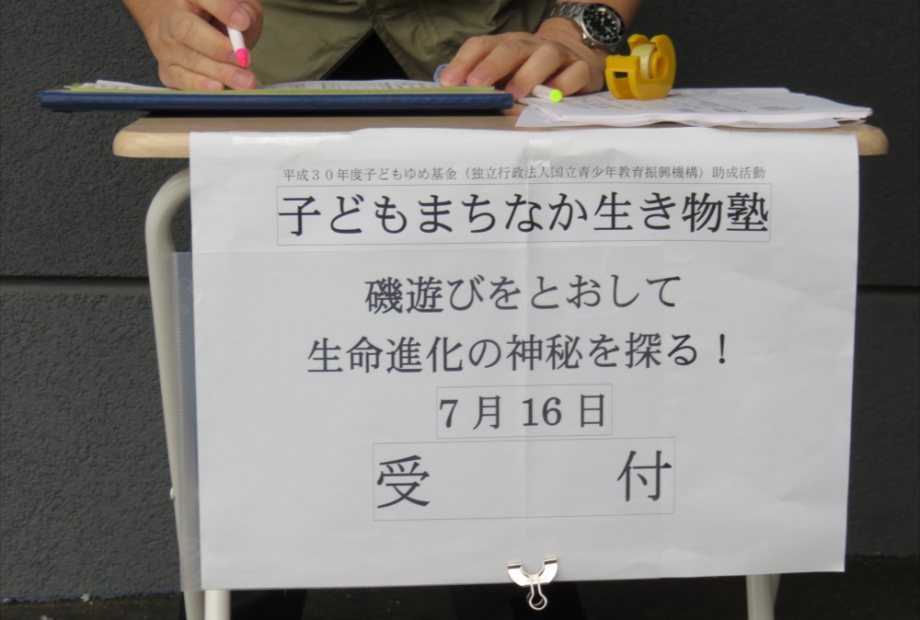 平成30年度子どもゆめ基金(独立行政法人国立青少年教育振興機構)助成活動
子どもまちなか生き物塾
磯遊びをとおして
生命進化の神秘を探る!
7月16日
受付